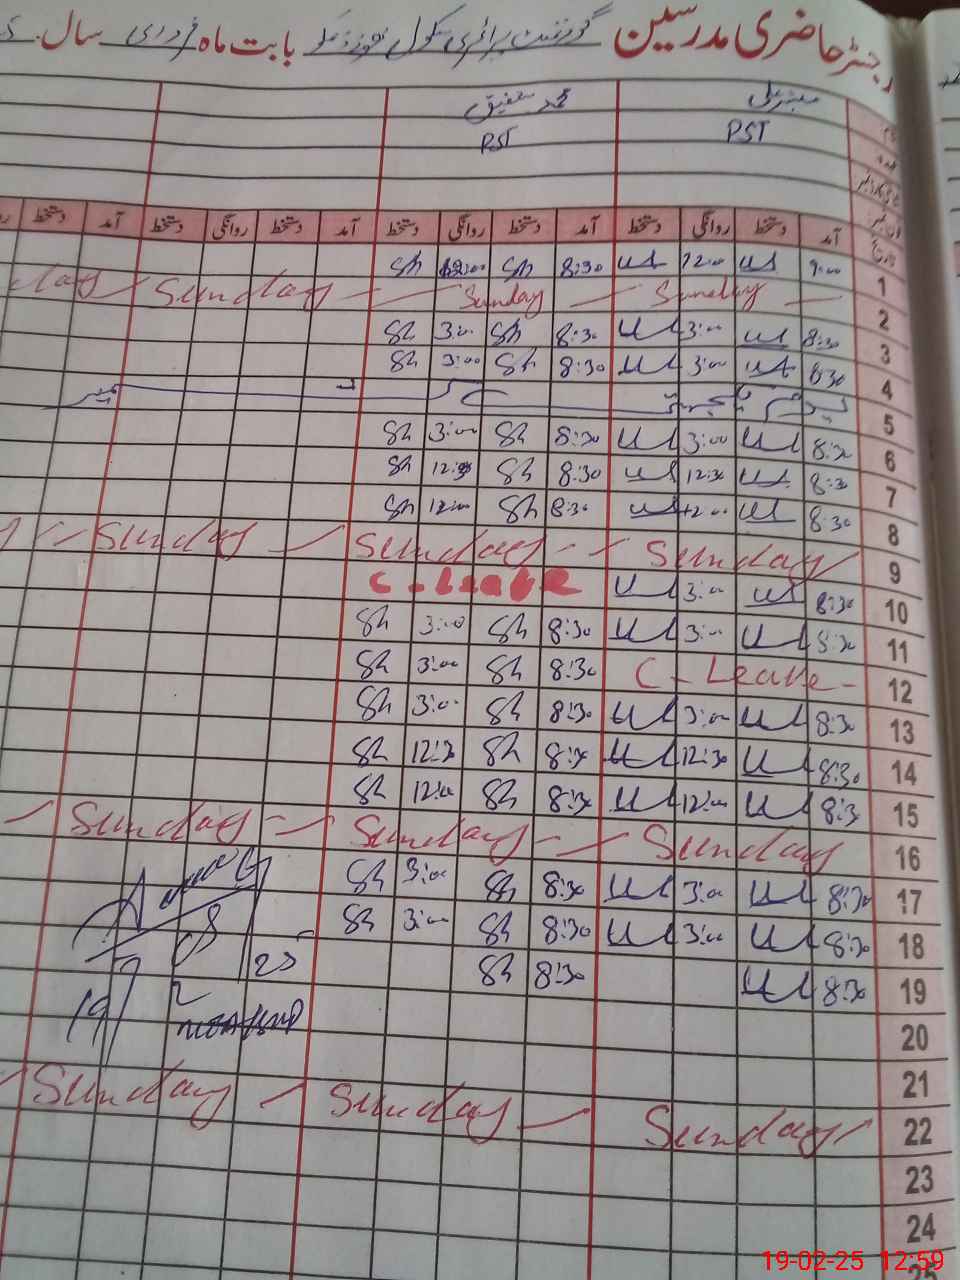 رجسٹر حاضری مدرسین گورنمنٹ پرائمری سکول بابت ماہ فروری سال
محمد شفیق
PST PST
آمد دستخط روانگی دستخط آمد دستخط روانگی دستخط آمد دستخط روانگی دستخط آمد دستخط
1 9:00 ul 12:00 ul 8:30 Sh 12:00 Sh
2 Sunday Sunday Sunday
3 8:30 ul 3:00 ul 8:30 Sh 3:00 Sh
4 8:30 ul 3:00 ul 8:30 Sh 3:00 Sh
5
6 8:30 ul 3:00 ul 8:30 Sh 3:00 Sh
7 8:30 ul 12:30 ul 8:30 Sh 12:30 Sh
8 8:30 ul 12:00 ul 8:30 Sh 12:00 Sh
9 Sunday Sunday Sunday
10 8:30 ul 3:00 ul C-Leave
11 8:30 ul 3:00 ul 8:30 Sh 3:00 Sh
12 C-Leave 8:30 Sh 3:00 Sh
13 8:30 ul 3:00 ul 8:30 Sh 3:00 Sh
14 8:30 ul 12:30 ul 8:30 Sh 12:30 Sh
15 8:30 ul 12:00 ul 8:30 Sh 12:00 Sh
16 Sunday Sunday Sunday
17 8:30 ul 3:00 ul 8:30 Sh 3:00 Sh
18 8:30 ul 3:00 ul 8:30 Sh 3:00 Sh
19 8:30 ul 8:30 Sh
19/2/25
20
21
22 Sunday Sunday Sunday
23
24
25
19-02-25 12:59